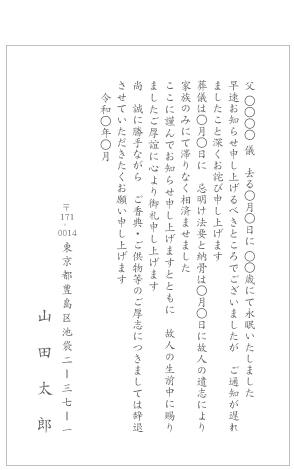 父 〇〇〇〇 儀 去る〇月〇日に 〇〇歳にて永眠いたしました
早速お知らせ申し上げるべきところでございましたが ご通知が遅れ
ましたこと深くお詫び申し上げます
葬儀は〇月〇日に 忌明け法要と納骨は〇月〇日に故人の遺志により
家族のみにて滞りなく相済ませました
ここに謹んでお知らせ申し上げますとともに 故人の生前中に賜り
ましたご厚誼に心より御礼申し上げます
尚 誠に勝手ながら ご香典・ご供物等のご厚志につきましては辞退
させていただきたくお願い申し上げます
令和〇年〇月
〒171-0014 東京都豊島区池袋二ー三七ー一
山田太郎